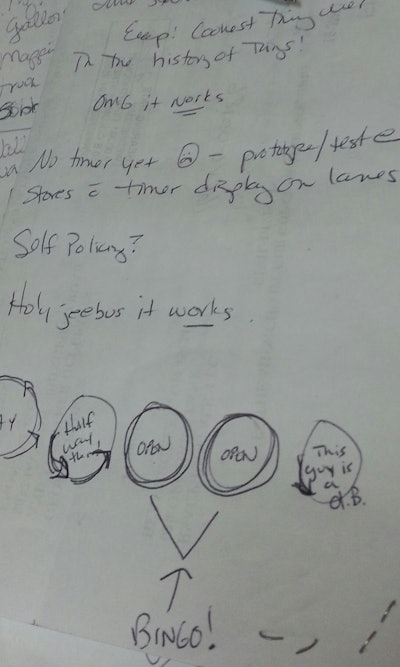 Gallon
Eeep! Coolest Thing ever
In the history of Things!
OMG it works
No timer yet ☹ - prototype/test @
Stores c̄ timer display on lanes
Self Policing?
Holy jeebus it works.
Half way thru!
OPEN
OPEN
This
guy is
a
d.B.
BINGO!